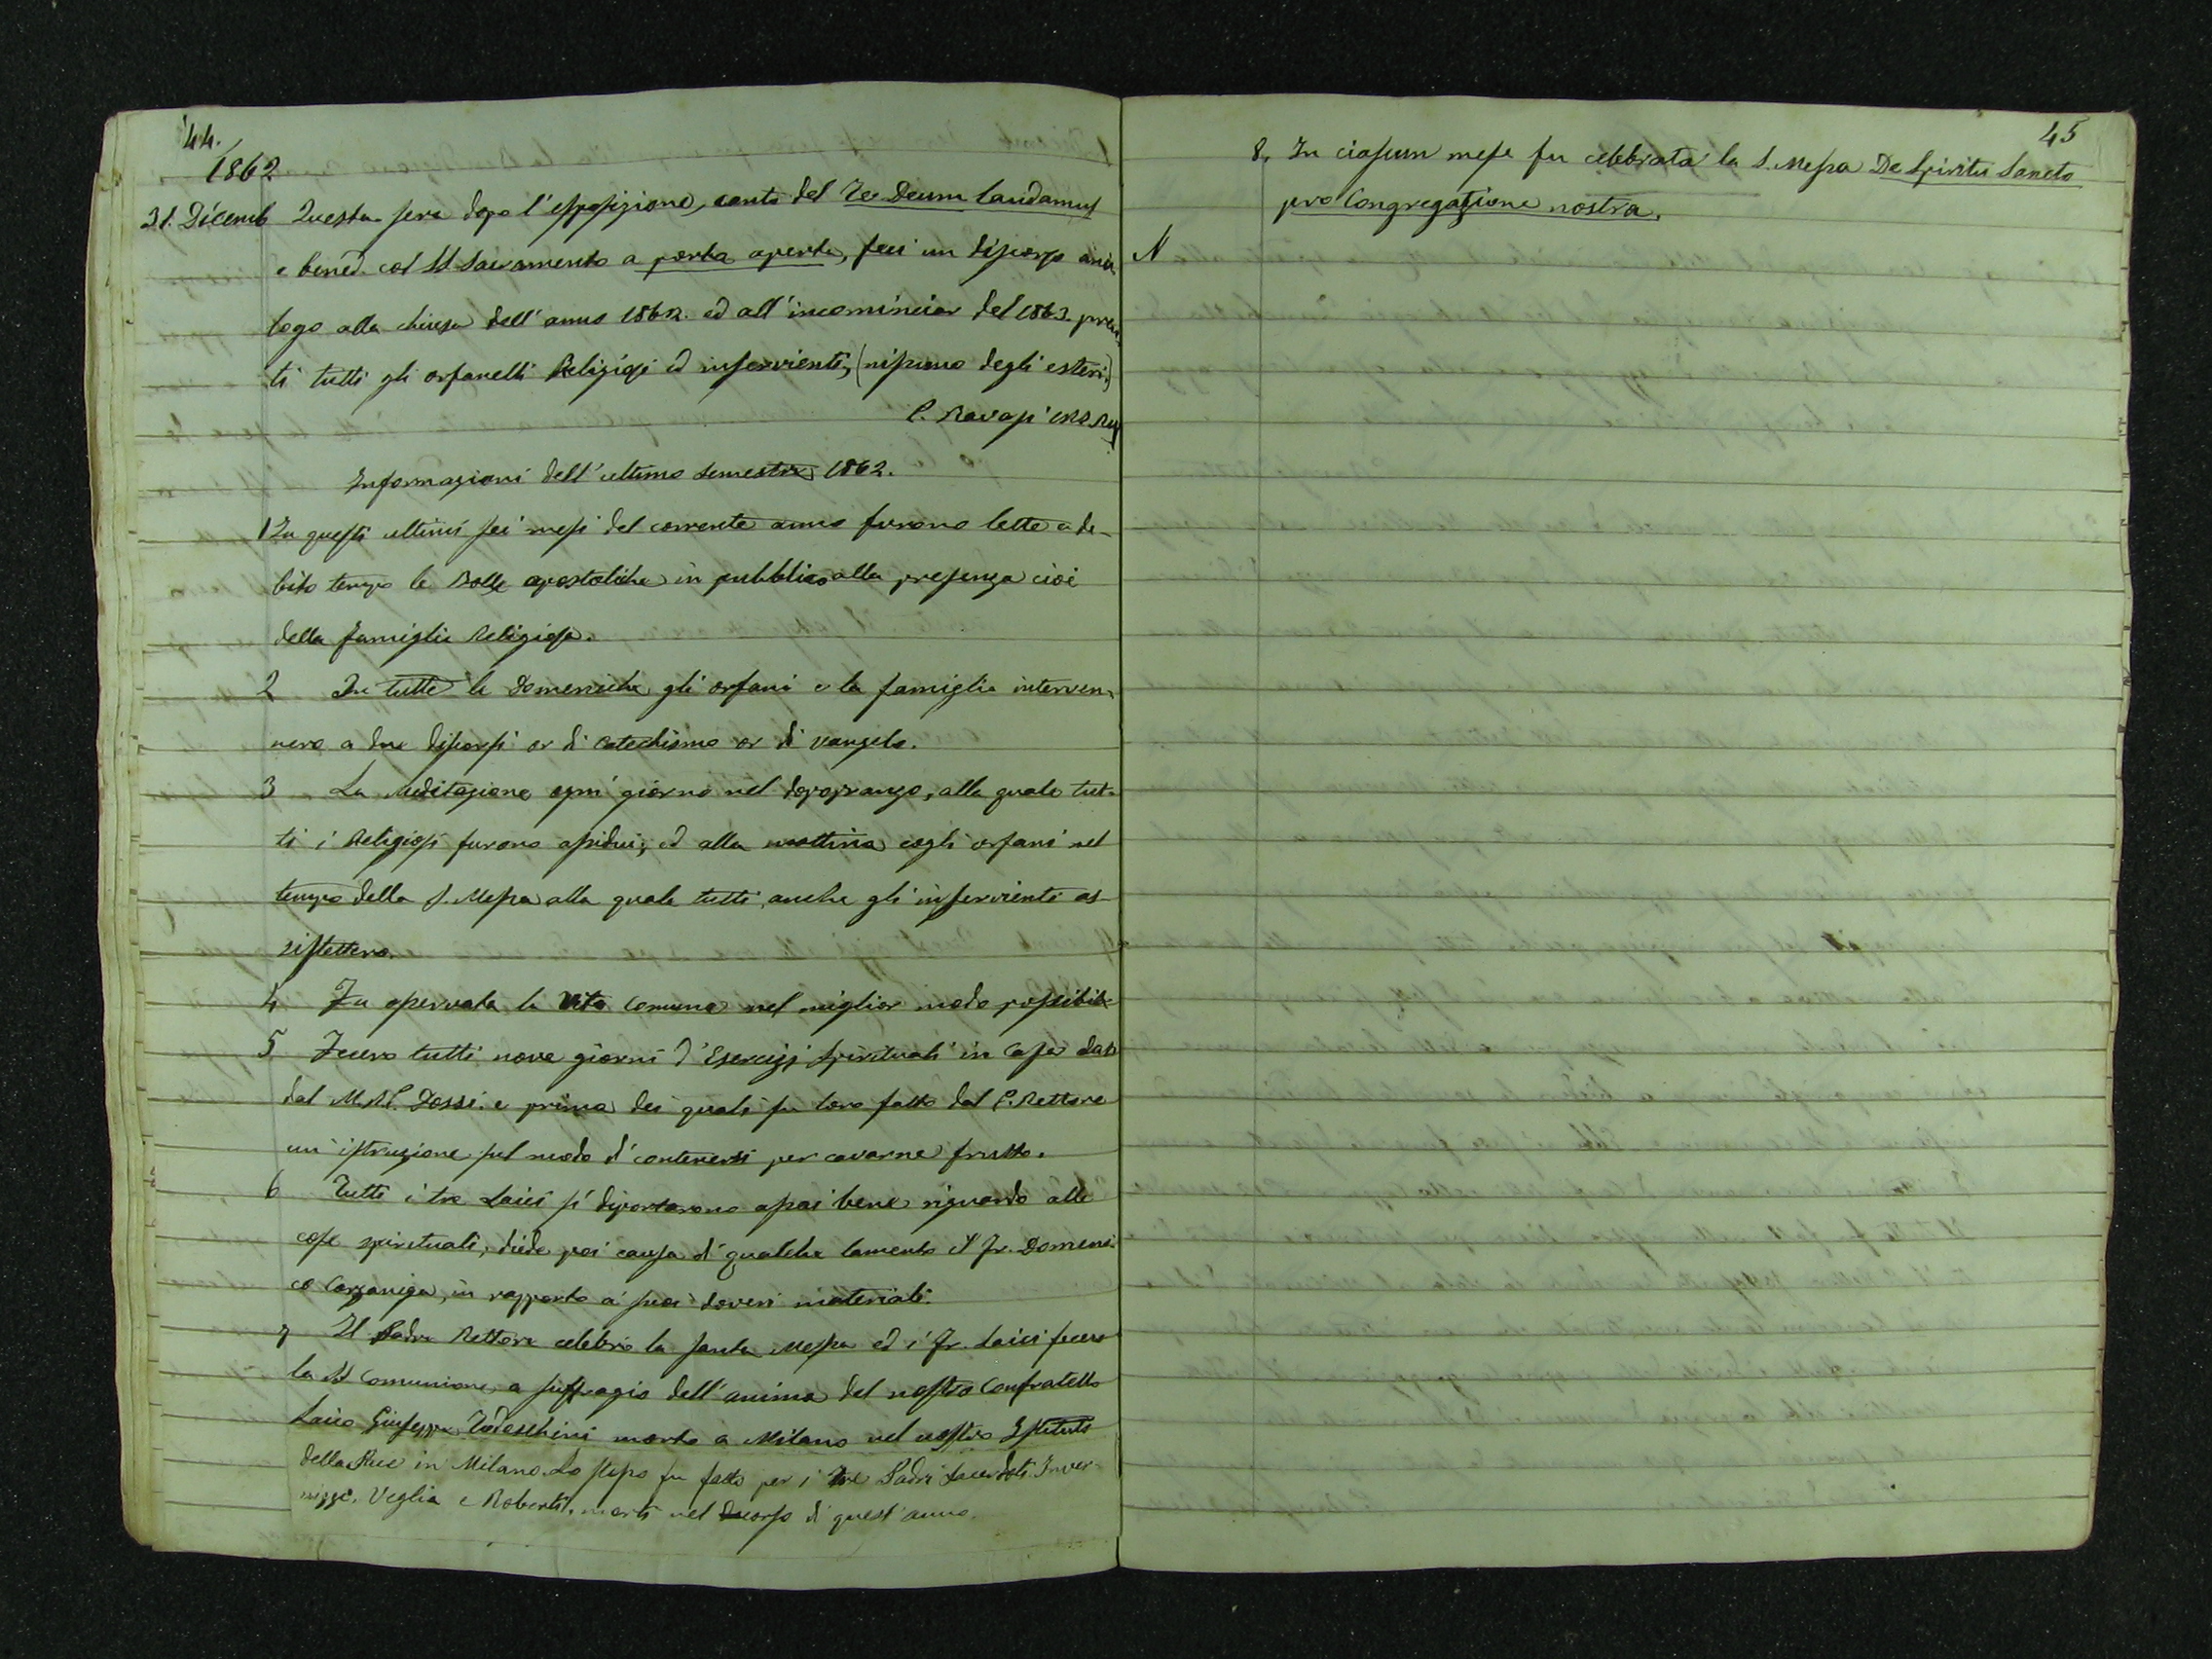 44.
1862
31. Dicemb Questa sera dopo l'esposizione, canto del Te Deum laudamus
e bened. col SS Sacramento a porta aperta, feci un discorso ana-
logo alla chiusa dell'anno 1862. ed all'incominciar del 1863. presen
ti tutti gli orfanelli Religiosi ed inservienti, (nissuno degli esteri.)
P. Ravasi CRS Ret
Informazioni dell'ultimo semestre 1862.
1 In questi ultimi sei mesi del corrente anno furono lette a de-
bito tempo le Bolle apostoliche in pubblico alla presenza cioè
della famiglia Religiosa.
2 In tutte le Domeniche gli orfani e la famiglia interven-
nero a due discorsi or di catechismo or di vangelo.
3 La Meditazione ogni giorno nel dopopranzo, alla quale tut-
ti i Religiosi furono assidui; ed alla mattina cogli orfani nel
tempo della S. Messa alla quale tutti, anche gli inservienti as-
sistettero.
4 Fu osservata la Vita comune nel miglior modo possibile
5 Fecero tutti nove giorni d'Esercizj spirituali in Casa dati
dal M.R.P. Dossi. e prima dei quali fu loro fatto dal P. Rettore
un'istruzione sul modo di contenersi per cavarne frutto.
6 Tutti i tre Laici si diportarono assai bene riguardo alle
cose spirituali, diede poi causa di qualche lamento il Fr. Domeni-
co Corzaniga, in rapporto a' suoi doveri materiali.
7 Il Padre Rettore celebrò la santa Messa ed i Fr. Laici fecero
la SS Comunione a suffragio dell'anima del nostro Confratello
Laico Giuseppe Todeschini morto a Milano nel nostro Istituto
della Pace in Milano. Lo stesso fu fatto per i tre Padri Sacerdoti. Inver-
nizzi, Veglia e Roberti. morti nel decorso di quest'anno.
45
8. In ciascun mese fu celebrata la S. Messa De Spiritu Sancto
pro Congregazione nostra.
N